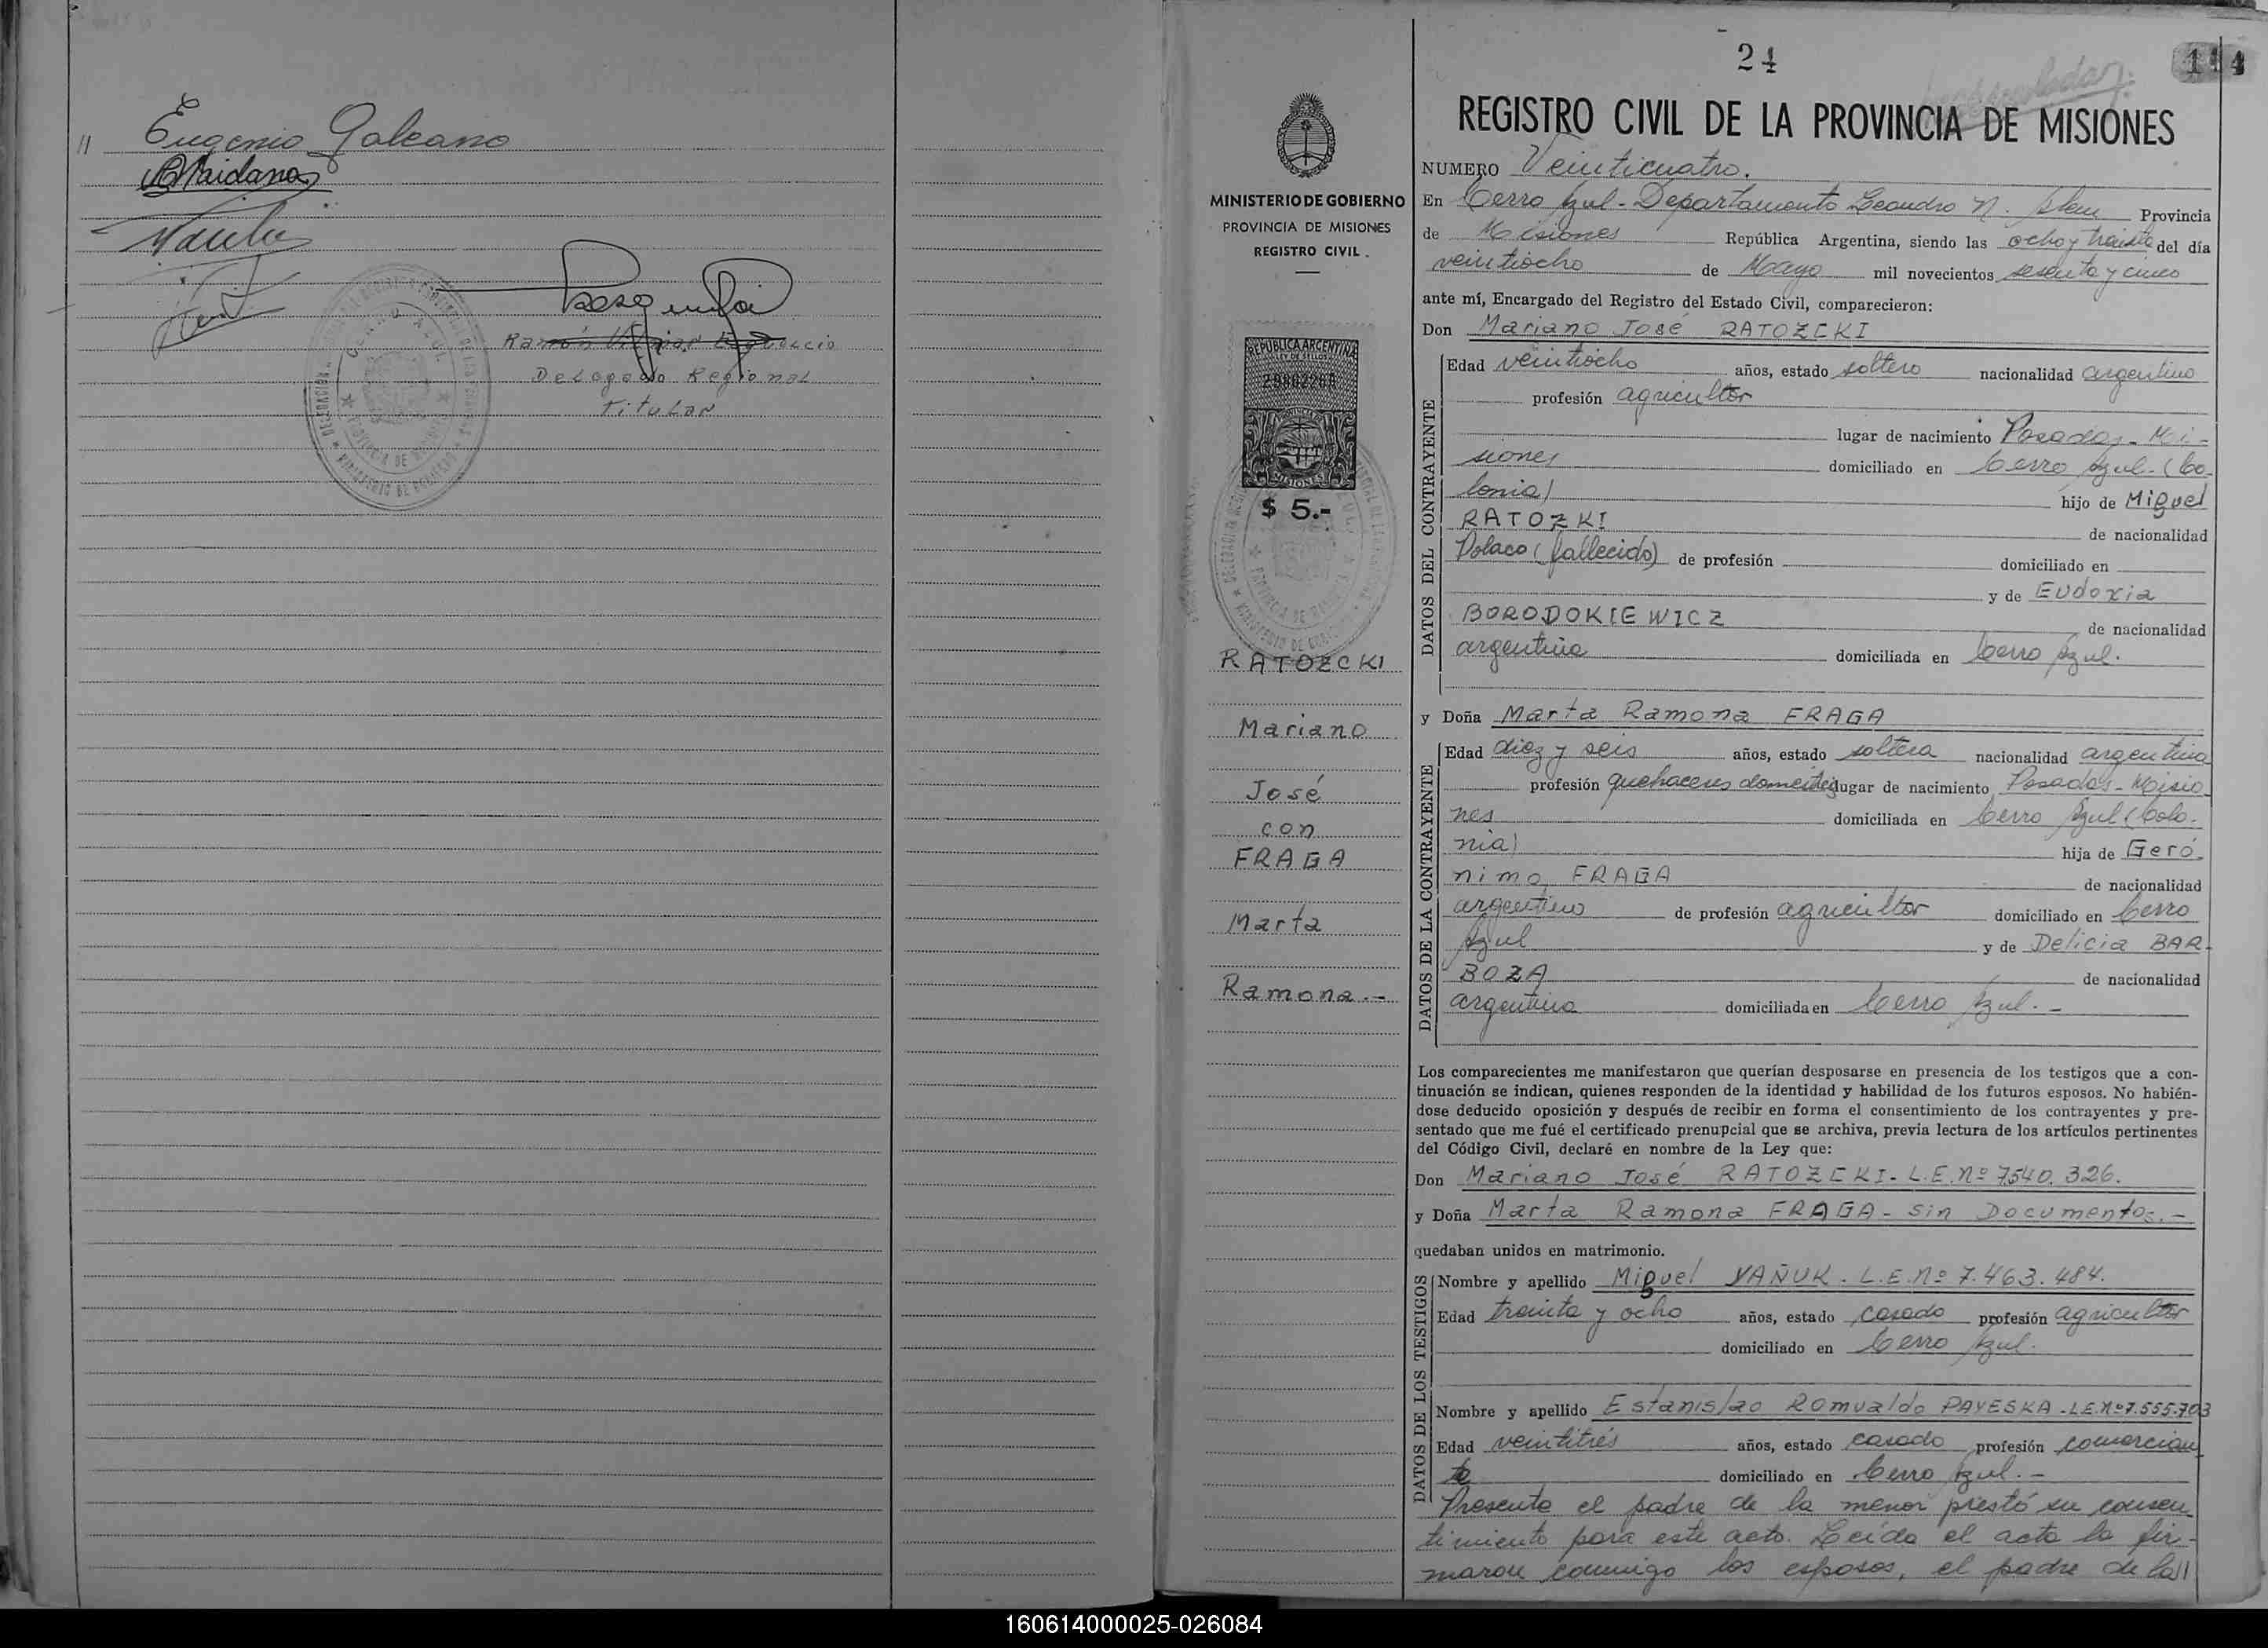 11 Eugenio Galeano
Maidana
Ramón
Delegado Regional
Titular
24
114
REGISTRO CIVIL DE LA PROVINCIA DE MISIONES
MINISTERIO DE GOBIERNO
PROVINCIA DE MISIONES
REGISTRO CIVIL
REPUBLICA ARGENTINA
LEY DE SELLOS
MISIONES
$ 5.-
RATOZCKI
Mariano
José
con
FRAGA
Marta
Ramona.-
NUMERO Veinticuatro.
En Cerro Azul - Departamento Leandro N. Alem Provincia
de Misiones República Argentina, siendo las ocho y treinta del día
veintiocho de Mayo mil novecientos sesenta y cinco
ante mí, Encargado del Registro del Estado Civil, comparecieron:
Don Mariano José RATOZCKI
DATOS DEL CONTRAYENTE
Edad veintiocho años, estado soltero nacionalidad argentino
profesión agricultor
lugar de nacimiento Posadas - Mi-
siones domiciliado en Cerro Azul - (Co-
lonia) hijo de Miguel
RATOZKI de nacionalidad
Polaco (fallecido) de profesión domiciliado en
y de Eudoxia
BORODOKIEWICZ de nacionalidad
argentina domiciliada en Cerro Azul.
y Doña Marta Ramona FRAGA
DATOS DE LA CONTRAYENTE
Edad diez y seis años, estado soltera nacionalidad argentina
profesión quehaceres domésticos lugar de nacimiento Posadas - Misio
nes domiciliada en Cerro Azul (Colo-
nia) hija de Geró-
nimo FRAGA de nacionalidad
argentino de profesión agricultor domiciliado en Cerro
Azul y de Delicia BAR-
BOZA de nacionalidad
argentina domiciliada en Cerro Azul. -
Los comparecientes me manifestaron que querían desposarse en presencia de los testigos que a con-
tinuación se indican, quienes responden de la identidad y habilidad de los futuros esposos. No habién-
dose deducido oposición y después de recibir en forma el consentimiento de los contrayentes y pre-
sentado que me fué el certificado prenupcial que se archiva, previa lectura de los artículos pertinentes
del Código Civil, declaré en nombre de la Ley que:
Don Mariano José RATOZCKI - L.E.Nº 7.540.326.
y Doña Marta Ramona FRAGA - Sin Documentos. -
quedaban unidos en matrimonio.
DATOS DE LOS TESTIGOS
Nombre y apellido Miguel YAÑUK. L.E.Nº 7.463.484.
Edad treinta y ocho años, estado casado profesión agricultor
domiciliado en Cerro Azul.
Nombre y apellido Estanislao Romualdo PAYESKA - L.E.Nº 7.555.703
Edad veintitrés años, estado casado profesión comercian
te domiciliado en Cerro Azul. -
Presente el padre de la menor prestó su consen
timiento para este acto. Leída el acta la fir-
maron conmigo los esposos, el padre de la 11
160614000025-026084